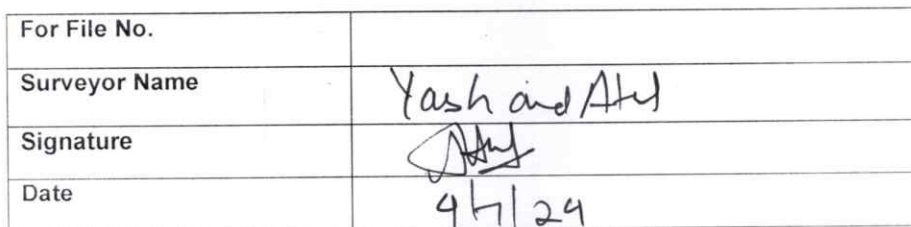 For File No.
Surveyor Name Yash and Atul
Signature Atul
Date 4/7/24